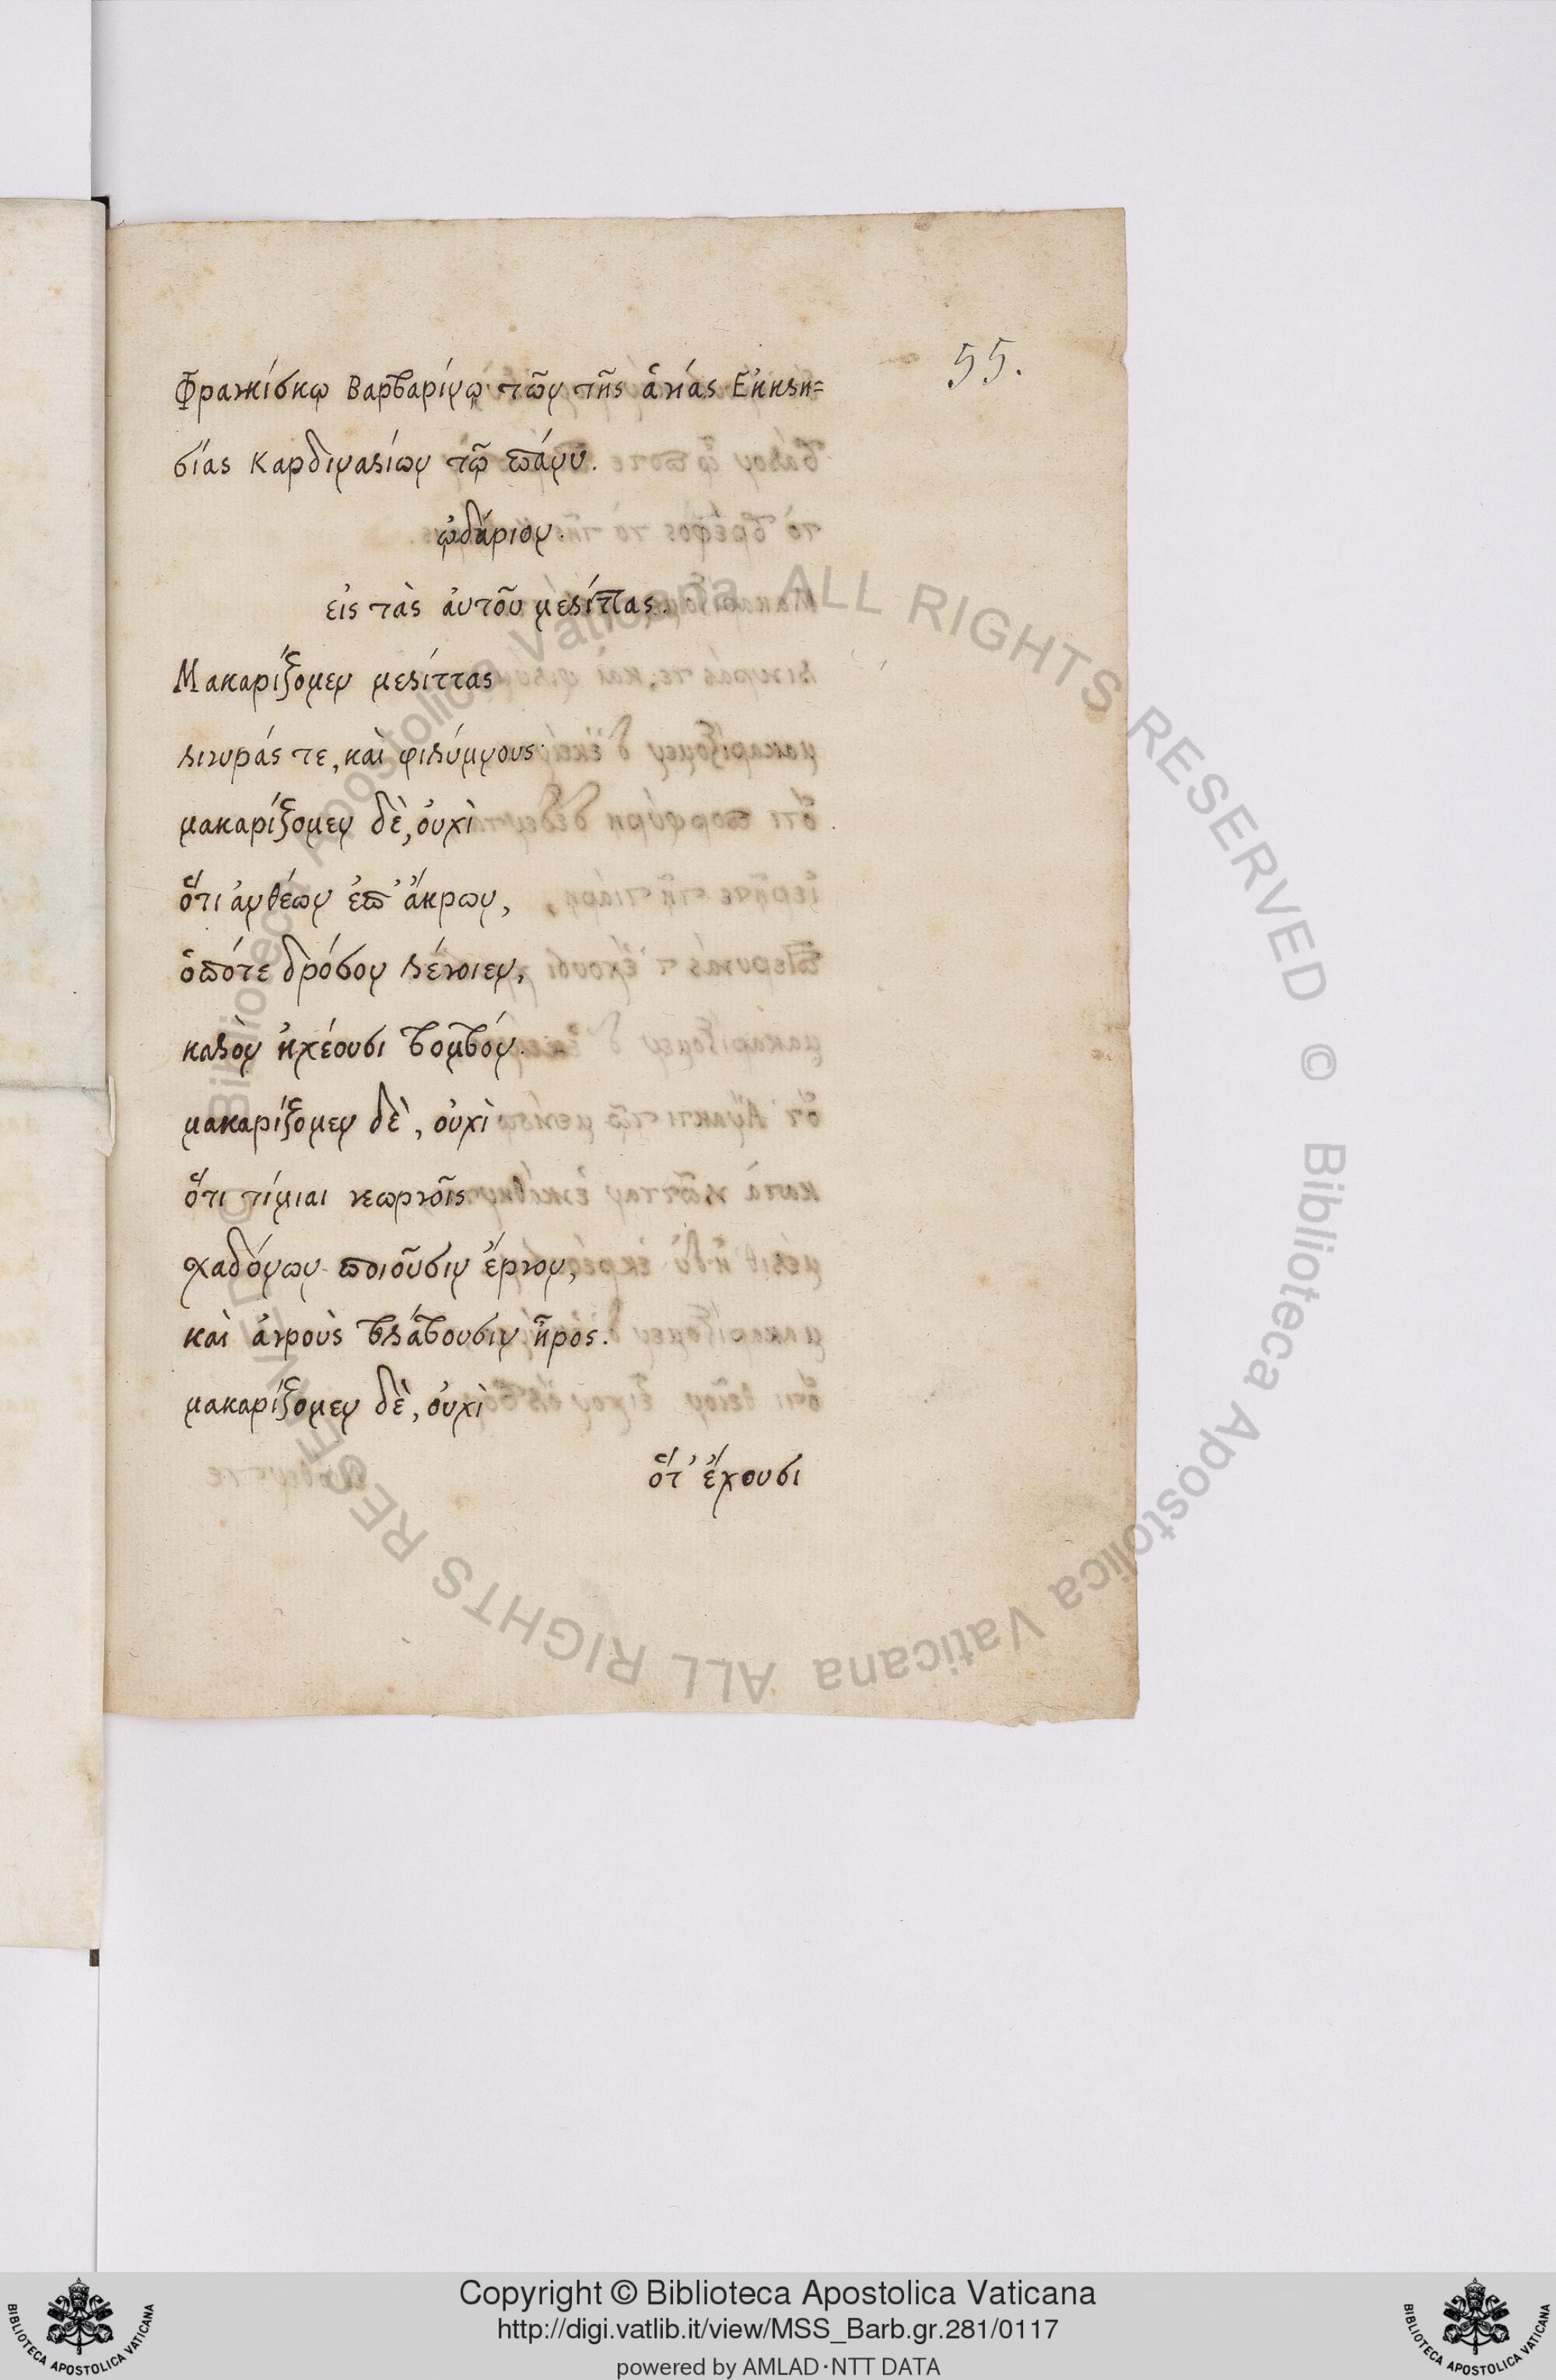 55.
Φραγκίσκῳ Βαρβαρίνῳ τῶν τῆς ἁγίας Ἐκκλη=
σίας Καρδιναλίων τῷ πάνυ.
ᾠδάριον.
εἰς τὰς ἀυτοῦ μελίττας.
Μακαρίζομεν μελίττας
λιγυράς τε, καὶ φιλύμνους·
μακαρίζομεν δὲ, ὀυχὶ
ὅτι ἀνθέων ἐπ' ἄκρων,
ὁπότε δρόσον λέγοιεν,
καλὸν ἠχέουσι βομβόν.
μακαρίζομεν δὲ, οὐχὶ
ὅτι τίμιαι γεωργοῖς
χαδόνων ποιοῦσιν ἔργον,
καὶ ἀγροὺς βλάβουσιν ἦρος.
μακαρίζομεν δὲ, οὐχὶ
ὅτ' ἔχουσι
© Biblioteca Apostolica Vaticana ALL RIGHTS RESERVED © Biblioteca Apostolica Vaticana ALL RIGHTS RESERVED
BIBLIOTECA APOSTOLICA VATICANA
Copyright © Biblioteca Apostolica Vaticana
http://digi.vatlib.it/view/MSS_Barb.gr.281/0117
powered by AMLAD·NTT DATA
BIBLIOTECA APOSTOLICA VATICANA